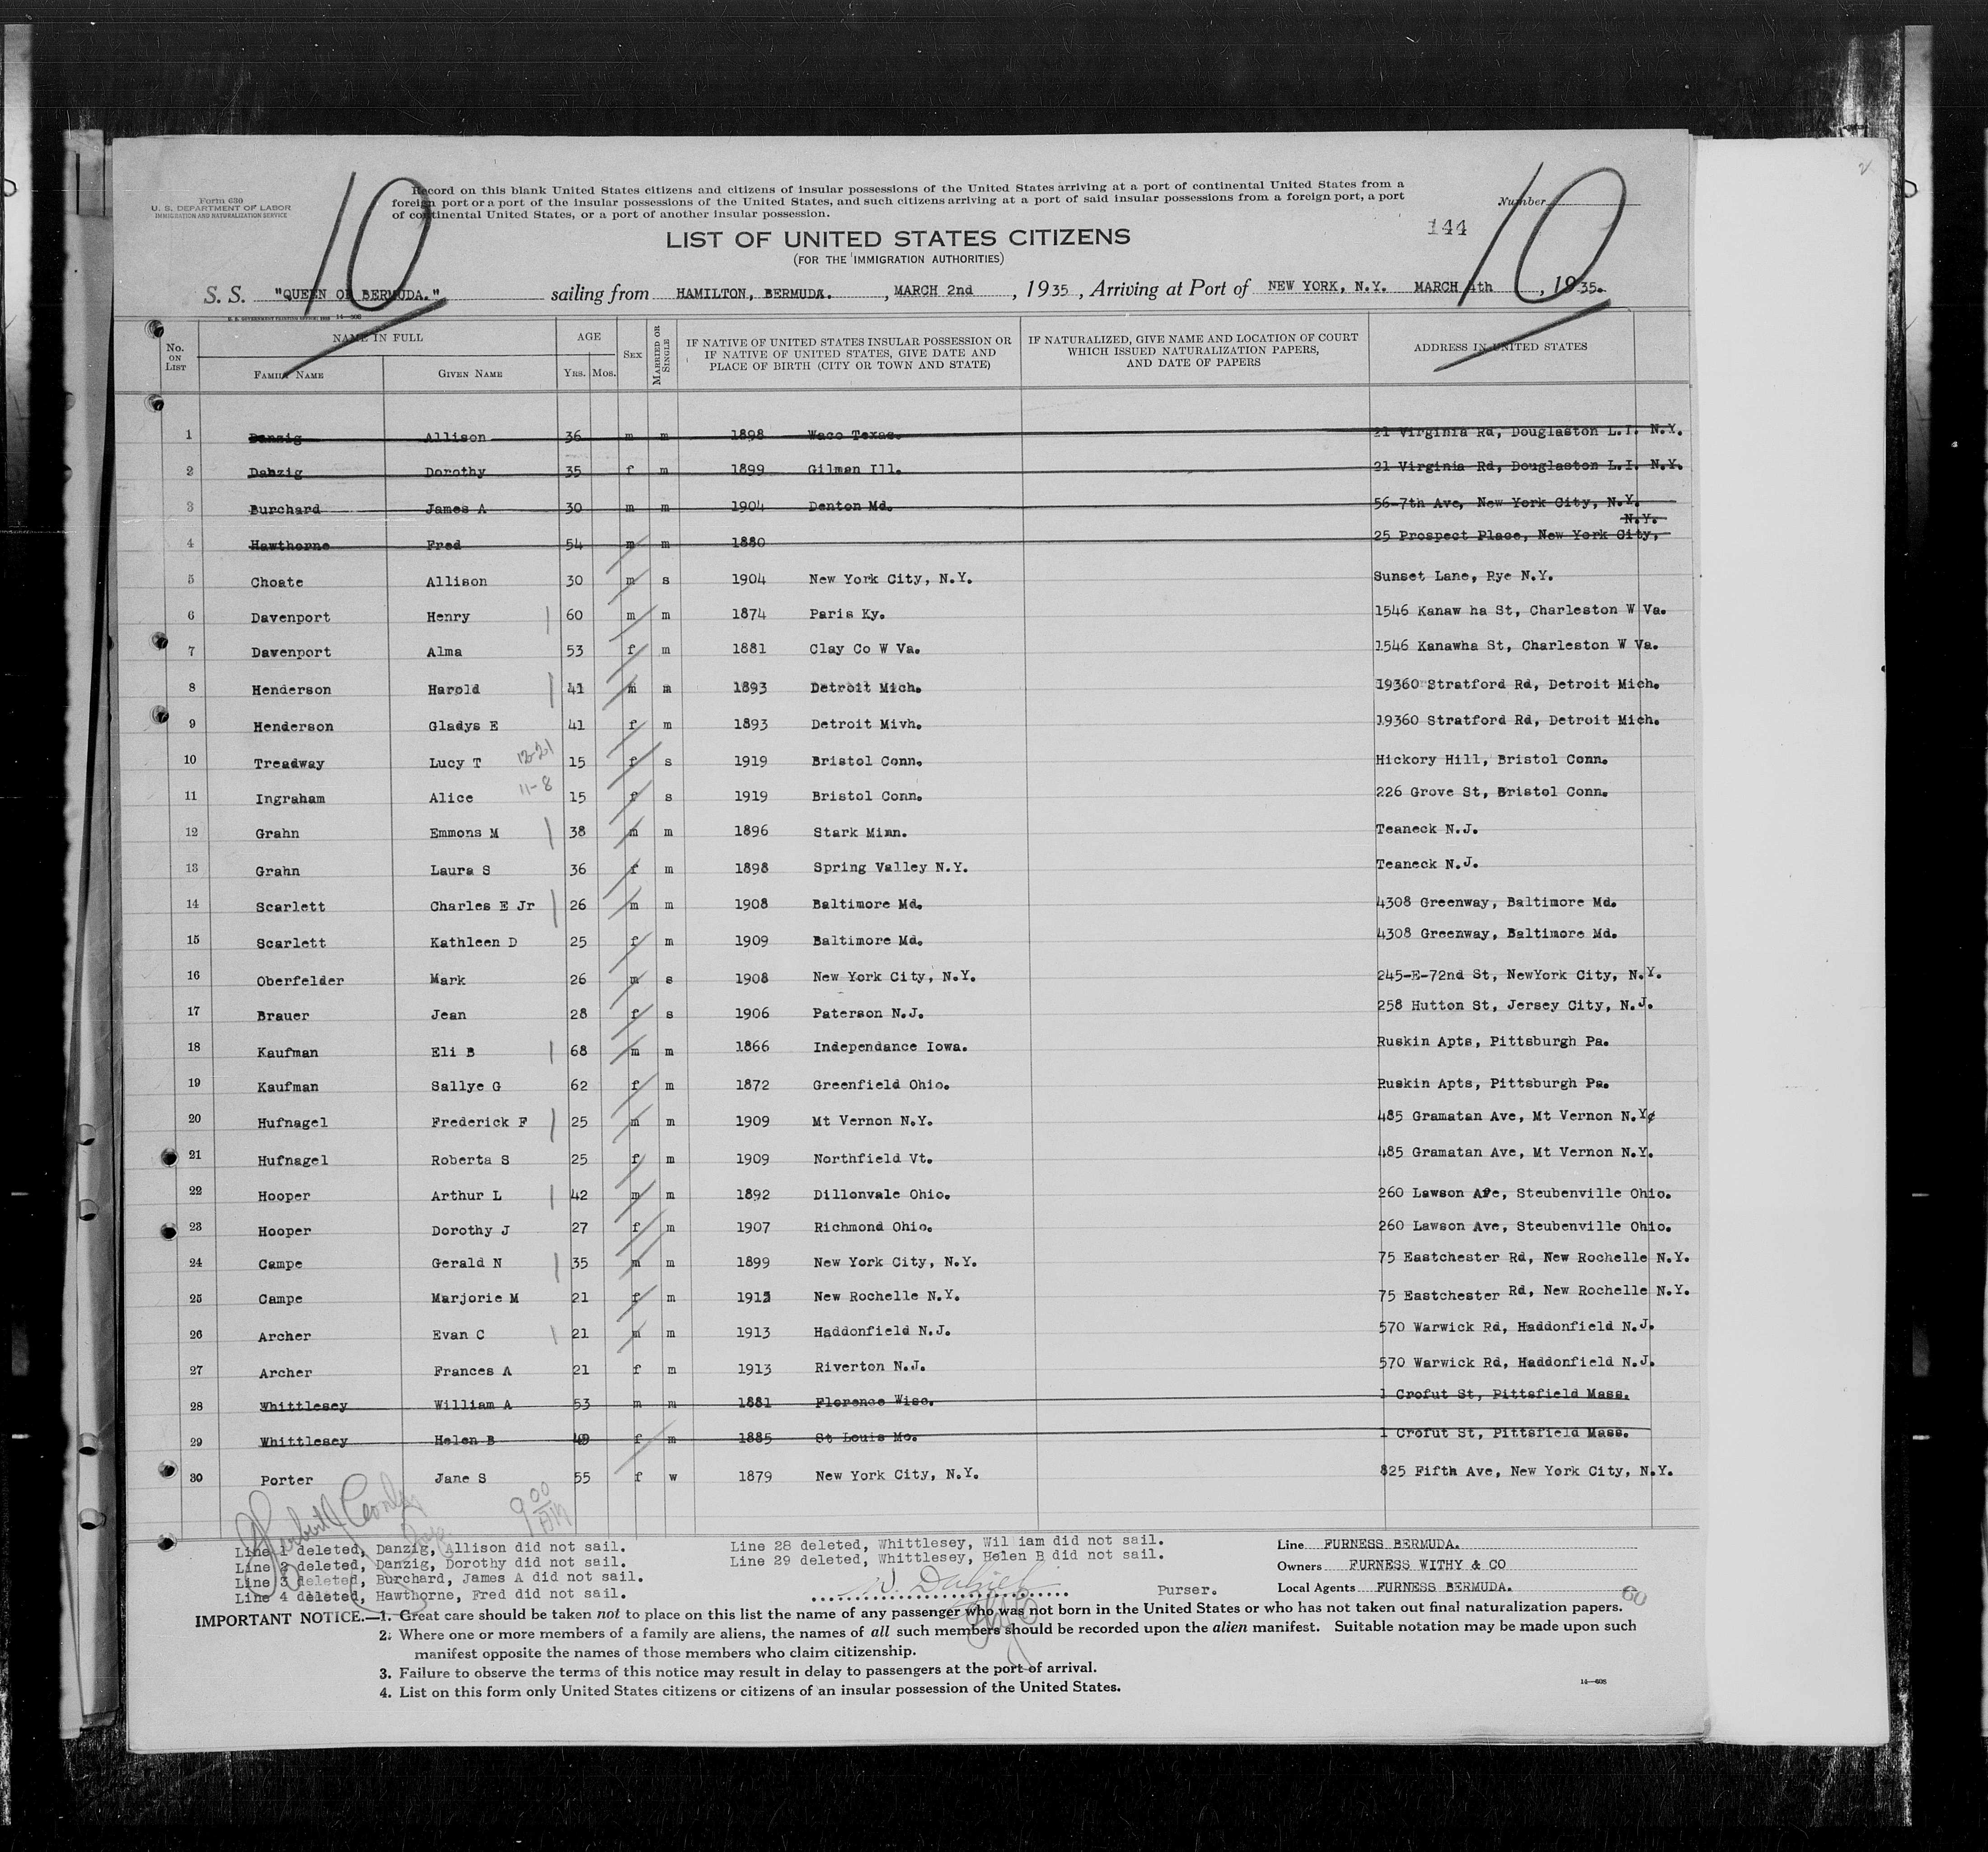 10
10
Form 630
U. S. DEPARTMENT OF LABOR
IMMIGRATION AND NATURALIZATION SERVICE
Record on this blank United States citizens and citizens of insular possessions of the United States arriving at a port of continental United States from a
foreign port or a port of the insular possessions of the United States, and such citizens arriving at a port of said insular possessions from a foreign port, a port
of continental United States, or a port of another insular possession.
Number
144
LIST OF UNITED STATES CITIZENS
(FOR THE IMMIGRATION AUTHORITIES)
S. S. "QUEEN OF BERMUDA." sailing from HAMILTON, BERMUDA. , MARCH 2nd , 1935 , Arriving at Port of NEW YORK, N.Y. MARCH 4th , 1935.
No. ON LIST NAME IN FULL FAMILY NAME GIVEN NAME AGE YRS. MOS. SEX MARRIED OR SINGLE IF NATIVE OF UNITED STATES INSULAR POSSESSION OR IF NATIVE OF UNITED STATES, GIVE DATE AND PLACE OF BIRTH (CITY OR TOWN AND STATE) IF NATURALIZED, GIVE NAME AND LOCATION OF COURT WHICH ISSUED NATURALIZATION PAPERS, AND DATE OF PAPERS ADDRESS IN UNITED STATES
1 Danzig Allison 36 m m 1898 Waco Texas. 21 Virginia Rd, Douglaston L.I. N.Y.
2 Danzig Dorothy 35 f m 1899 Gilman Ill. 21 Virginia Rd, Douglaston L.I. N.Y.
3 Burchard James A 30 m m 1904 Denton Md. 56-7th Ave, New York City, N.Y.
4 Hawthorne Fred 54 m m 1880 25 Prospect Place, New York City, N.Y.
5 Choate Allison 30 m s 1904 New York City, N.Y. Sunset Lane, Rye N.Y.
6 Davenport Henry 60 m m 1874 Paris Ky. 1546 Kanaw ha St, Charleston W Va.
7 Davenport Alma 53 f m 1881 Clay Co W Va. 1546 Kanawha St, Charleston W Va.
8 Henderson Harold 41 m m 1893 Detroit Mich. 19360 Stratford Rd, Detroit Mich.
9 Henderson Gladys E 41 f m 1893 Detroit Mivh. 19360 Stratford Rd, Detroit Mich.
10 Treadway Lucy T 12-21 15 f s 1919 Bristol Conn. Hickory Hill, Bristol Conn.
11 Ingraham Alice 11-8 15 f s 1919 Bristol Conn. 226 Grove St, Bristol Conn.
12 Grahn Emmons M 38 m m 1896 Stark Minn. Teaneck N.J.
13 Grahn Laura S 36 f m 1898 Spring Valley N.Y. Teaneck N.J.
14 Scarlett Charles E Jr 26 m m 1908 Baltimore Md. 4308 Greenway, Baltimore Md.
15 Scarlett Kathleen D 25 f m 1909 Baltimore Md. 4308 Greenway, Baltimore Md.
16 Oberfelder Mark 26 m s 1908 New York City, N.Y. 245-E-72nd St, NewYork City, N.Y.
17 Brauer Jean 28 f s 1906 Paterson N.J. 258 Hutton St, Jersey City, N.J.
18 Kaufman Eli B 68 m m 1866 Independance Iowa. Ruskin Apts, Pittsburgh Pa.
19 Kaufman Sallye G 62 f m 1872 Greenfield Ohio. Ruskin Apts, Pittsburgh Pa.
20 Hufnagel Frederick F 25 m m 1909 Mt Vernon N.Y. 485 Gramatan Ave, Mt Vernon N.Y¢
21 Hufnagel Roberta S 25 f m 1909 Northfield Vt. 485 Gramatan Ave, Mt Vernon N.Y.
22 Hooper Arthur L 42 m m 1892 Dillonvale Ohio. 260 Lawson Ave, Steubenville Ohio.
23 Hooper Dorothy J 27 f m 1907 Richmond Ohio. 260 Lawson Ave, Steubenville Ohio.
24 Campe Gerald N 35 m m 1899 New York City, N.Y. 75 Eastchester Rd, New Rochelle N.Y.
25 Campe Marjorie M 21 f m 1913 New Rochelle N.Y. 75 Eastchester Rd, New Rochelle N.Y.
26 Archer Evan C 21 m m 1913 Haddonfield N.J. 570 Warwick Rd, Haddonfield N.J.
27 Archer Frances A 21 f m 1913 Riverton N.J. 570 Warwick Rd, Haddonfield N.J.
28 Whittlesey William A 53 m m 1881 Florence Wisc. 1 Crofut St, Pittsfield Mass.
29 Whittlesey Helen B 49 f m 1885 St Louis Mo. 1 Crofut St, Pittsfield Mass.
30 Porter Jane S 55 f w 1879 New York City, N.Y. 825 Fifth Ave, New York City, N.Y.
9 00 AM
Line 1 deleted, Danzig, Allison did not sail.
Line 2 deleted, Danzig, Dorothy did not sail.
Line 3 deleted, Burchard, James A did not sail.
Line 4 deleted, Hawthorne, Fred did not sail.
Line 28 deleted, Whittlesey, Wil iam did not sail.
Line 29 deleted, Whittlesey, Helen B did not sail.
Purser.
Line FURNESS BERMUDA.
Owners FURNESS WITHY & CO
Local Agents FURNESS BERMUDA.
IMPORTANT NOTICE.—1. Great care should be taken not to place on this list the name of any passenger who was not born in the United States or who has not taken out final naturalization papers.
2. Where one or more members of a family are aliens, the names of all such members should be recorded upon the alien manifest. Suitable notation may be made upon such
manifest opposite the names of those members who claim citizenship.
3. Failure to observe the terms of this notice may result in delay to passengers at the port of arrival.
4. List on this form only United States citizens or citizens of an insular possession of the United States.
14—608